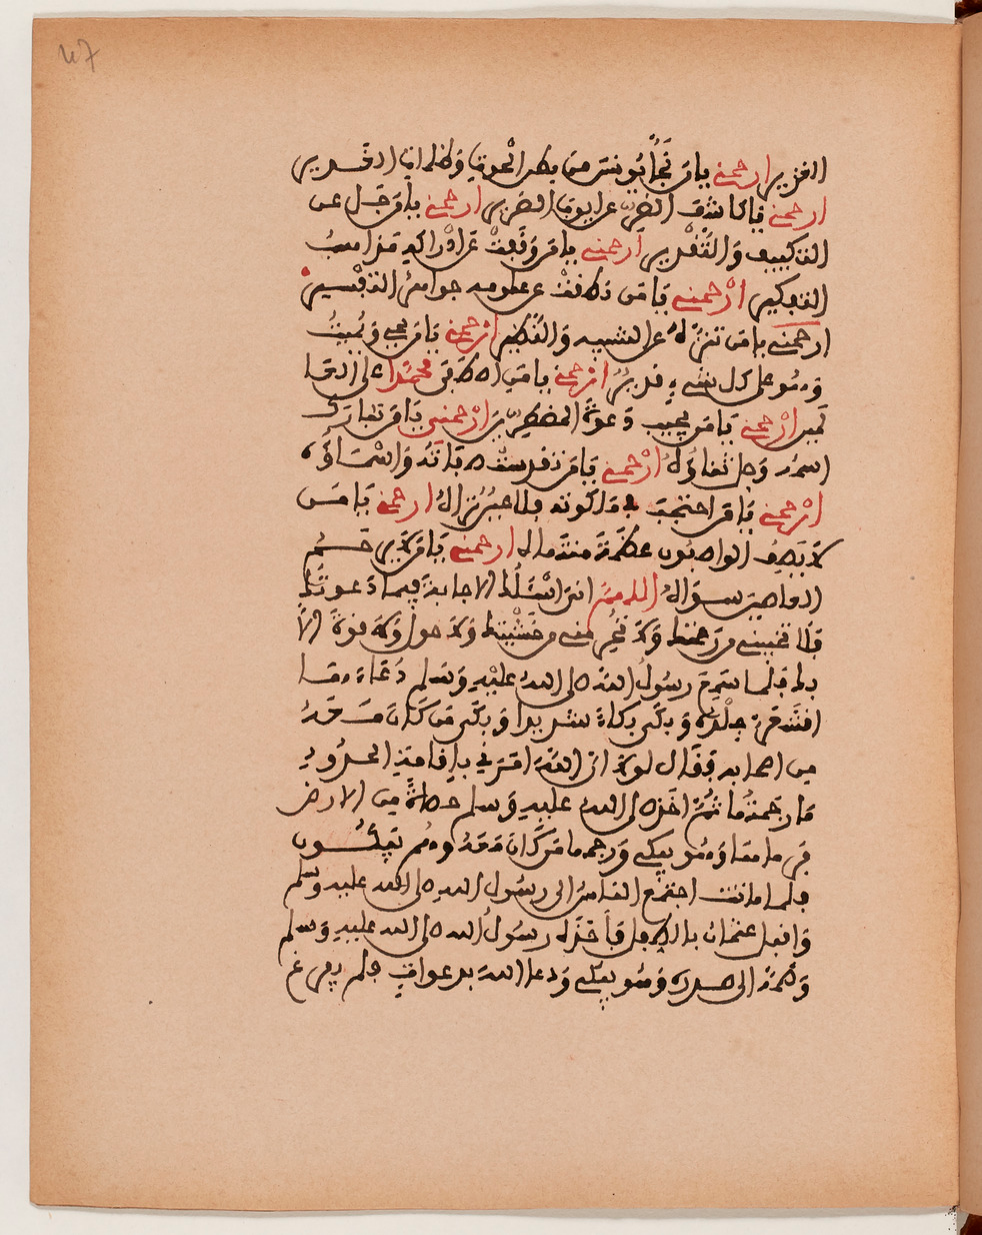 47
القدير ارحمني يا من نَجَّا يُونس من بطن الحوت وظلمات الغدير
ارحمني يا كاشف الضر عن ايوب الضرير ارحمني يا من جل عن
التكييف والتقدير ارحمني يا من وقفت عن ادراكه مذاهب
التفكير ارحمني يا من
ارحمني يا من تنزه عن التشبيه والنظير ارحمني يا من يحي ويميت
وهو على كل شيء قدير ارحمني يا من اصطفى محمدا على
ارحمني يا من يجيب دعوة المضطرين ارحمني يا من تبارك
اسمه وجل ثناؤه ارحمني يا من تقدست صفاته واسماؤه
ارحمني يا من احتجب في ملكوته فلا عين تراه ارحمني يا من
لا يصف الواصفون عظمة منتهاه ارحمني يا من لا
سواه اللهم اني اسئلك الاجابة فيما دعوتك
فلا تخيبني من رحمتك ولا من خشيتك ولا حول ولا قوة الا
بك فلما سمع رسول الله صلى الله عليه وسلم دعاءها
اقشعر جلده وبكى بكاء شديدا وبكى من كان معه
من اصحابه فقال لولا ان الله امرني باقامة الحدود
ما رجمتها ثم اخذ صلى الله عليه وسلم حصاة من الارض
فرماها وهو يبكي ورجمها من كان معه وهم يبكون
فلما ماتت اجتمع الناس الى رسول الله صلى الله عليه وسلم
واقبل عثمان بالطفل فأخذه رسول الله صلى الله عليه وسلم
وضمه الى صدره وهو يبكي ودعا الله بدعوات فلم